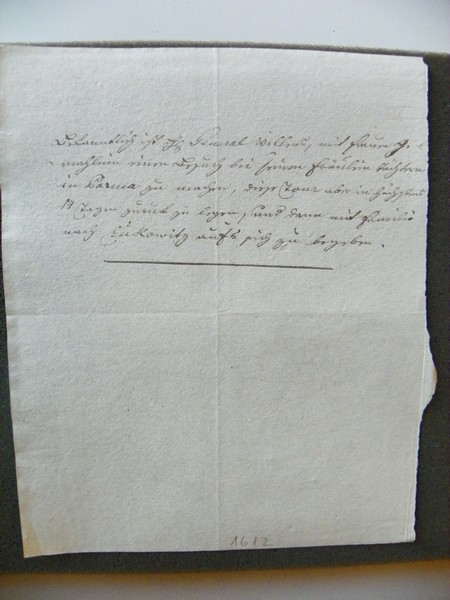 Bekanntlich ist H. General Willens, mit seiner Ge-
mahlin einen Besuch bei seinen Fräulein Töchtern
in Parma zu machen, diese Tour aber in höchstens
14 Tagen zurück zu legen, und dann mit Familie
nach Lukowitz aufs zu begeben.
1612